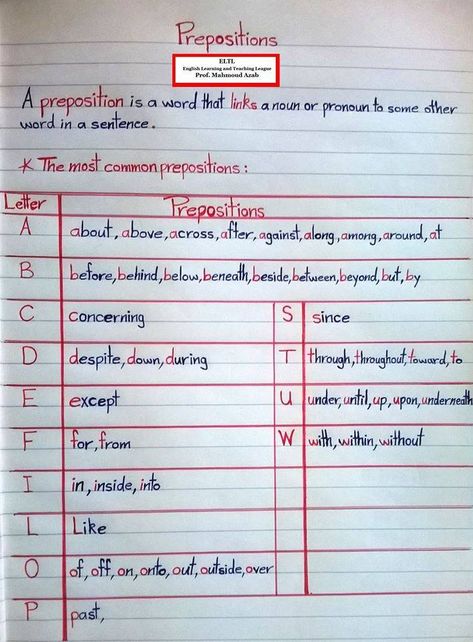 Prepositions
ELTL
English Learning and Teaching League
Prof. Mahmoud Azab
A preposition is a word that links a noun or pronoun to some other
word in a sentence.
* The most common prepositions:
Letter Prepositions
A about, above, across, after, against, along, among, around, at
B before, behind, below, beneath, beside, between, beyond, but, by
C concerning S since
D despite, down, during T through, throughout, toward, to
E except U under, until, up, upon, underneath
F for, from W with, within, without
I in, inside, into
L Like
O of, off, on, onto, out, outside, over
P past,